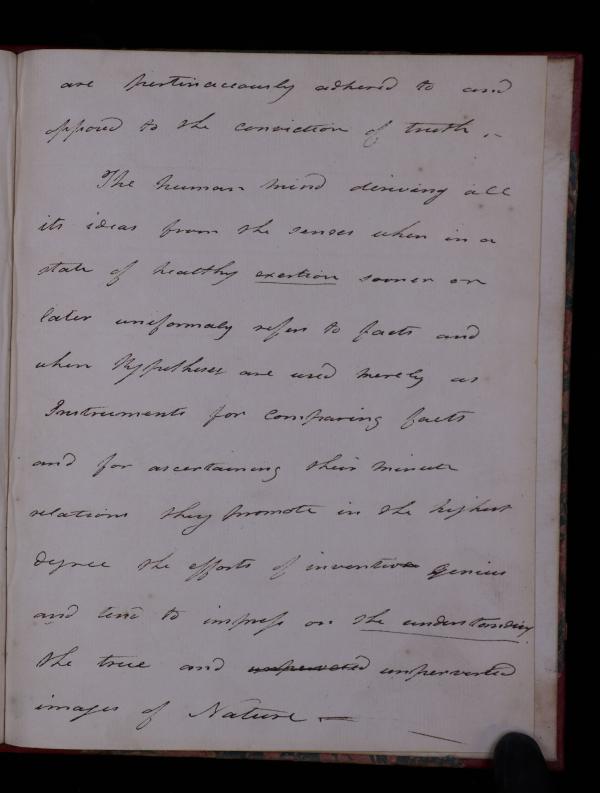 are pertinaceously adhered to and
opposed to the conviction of truth. -
The human mind deriving all
its ideas from the senses when in a
state of healthy exertion sooner or
later uniformaly refers to facts and
when Hypotheses are used merely as
Instruments for comparing facts
and for ascertaining their minute
relations they promote in the highest
degree the efforts of inventive genius
and tend to impress on the understanding
the true and unperverted unperverted
images of Nature —